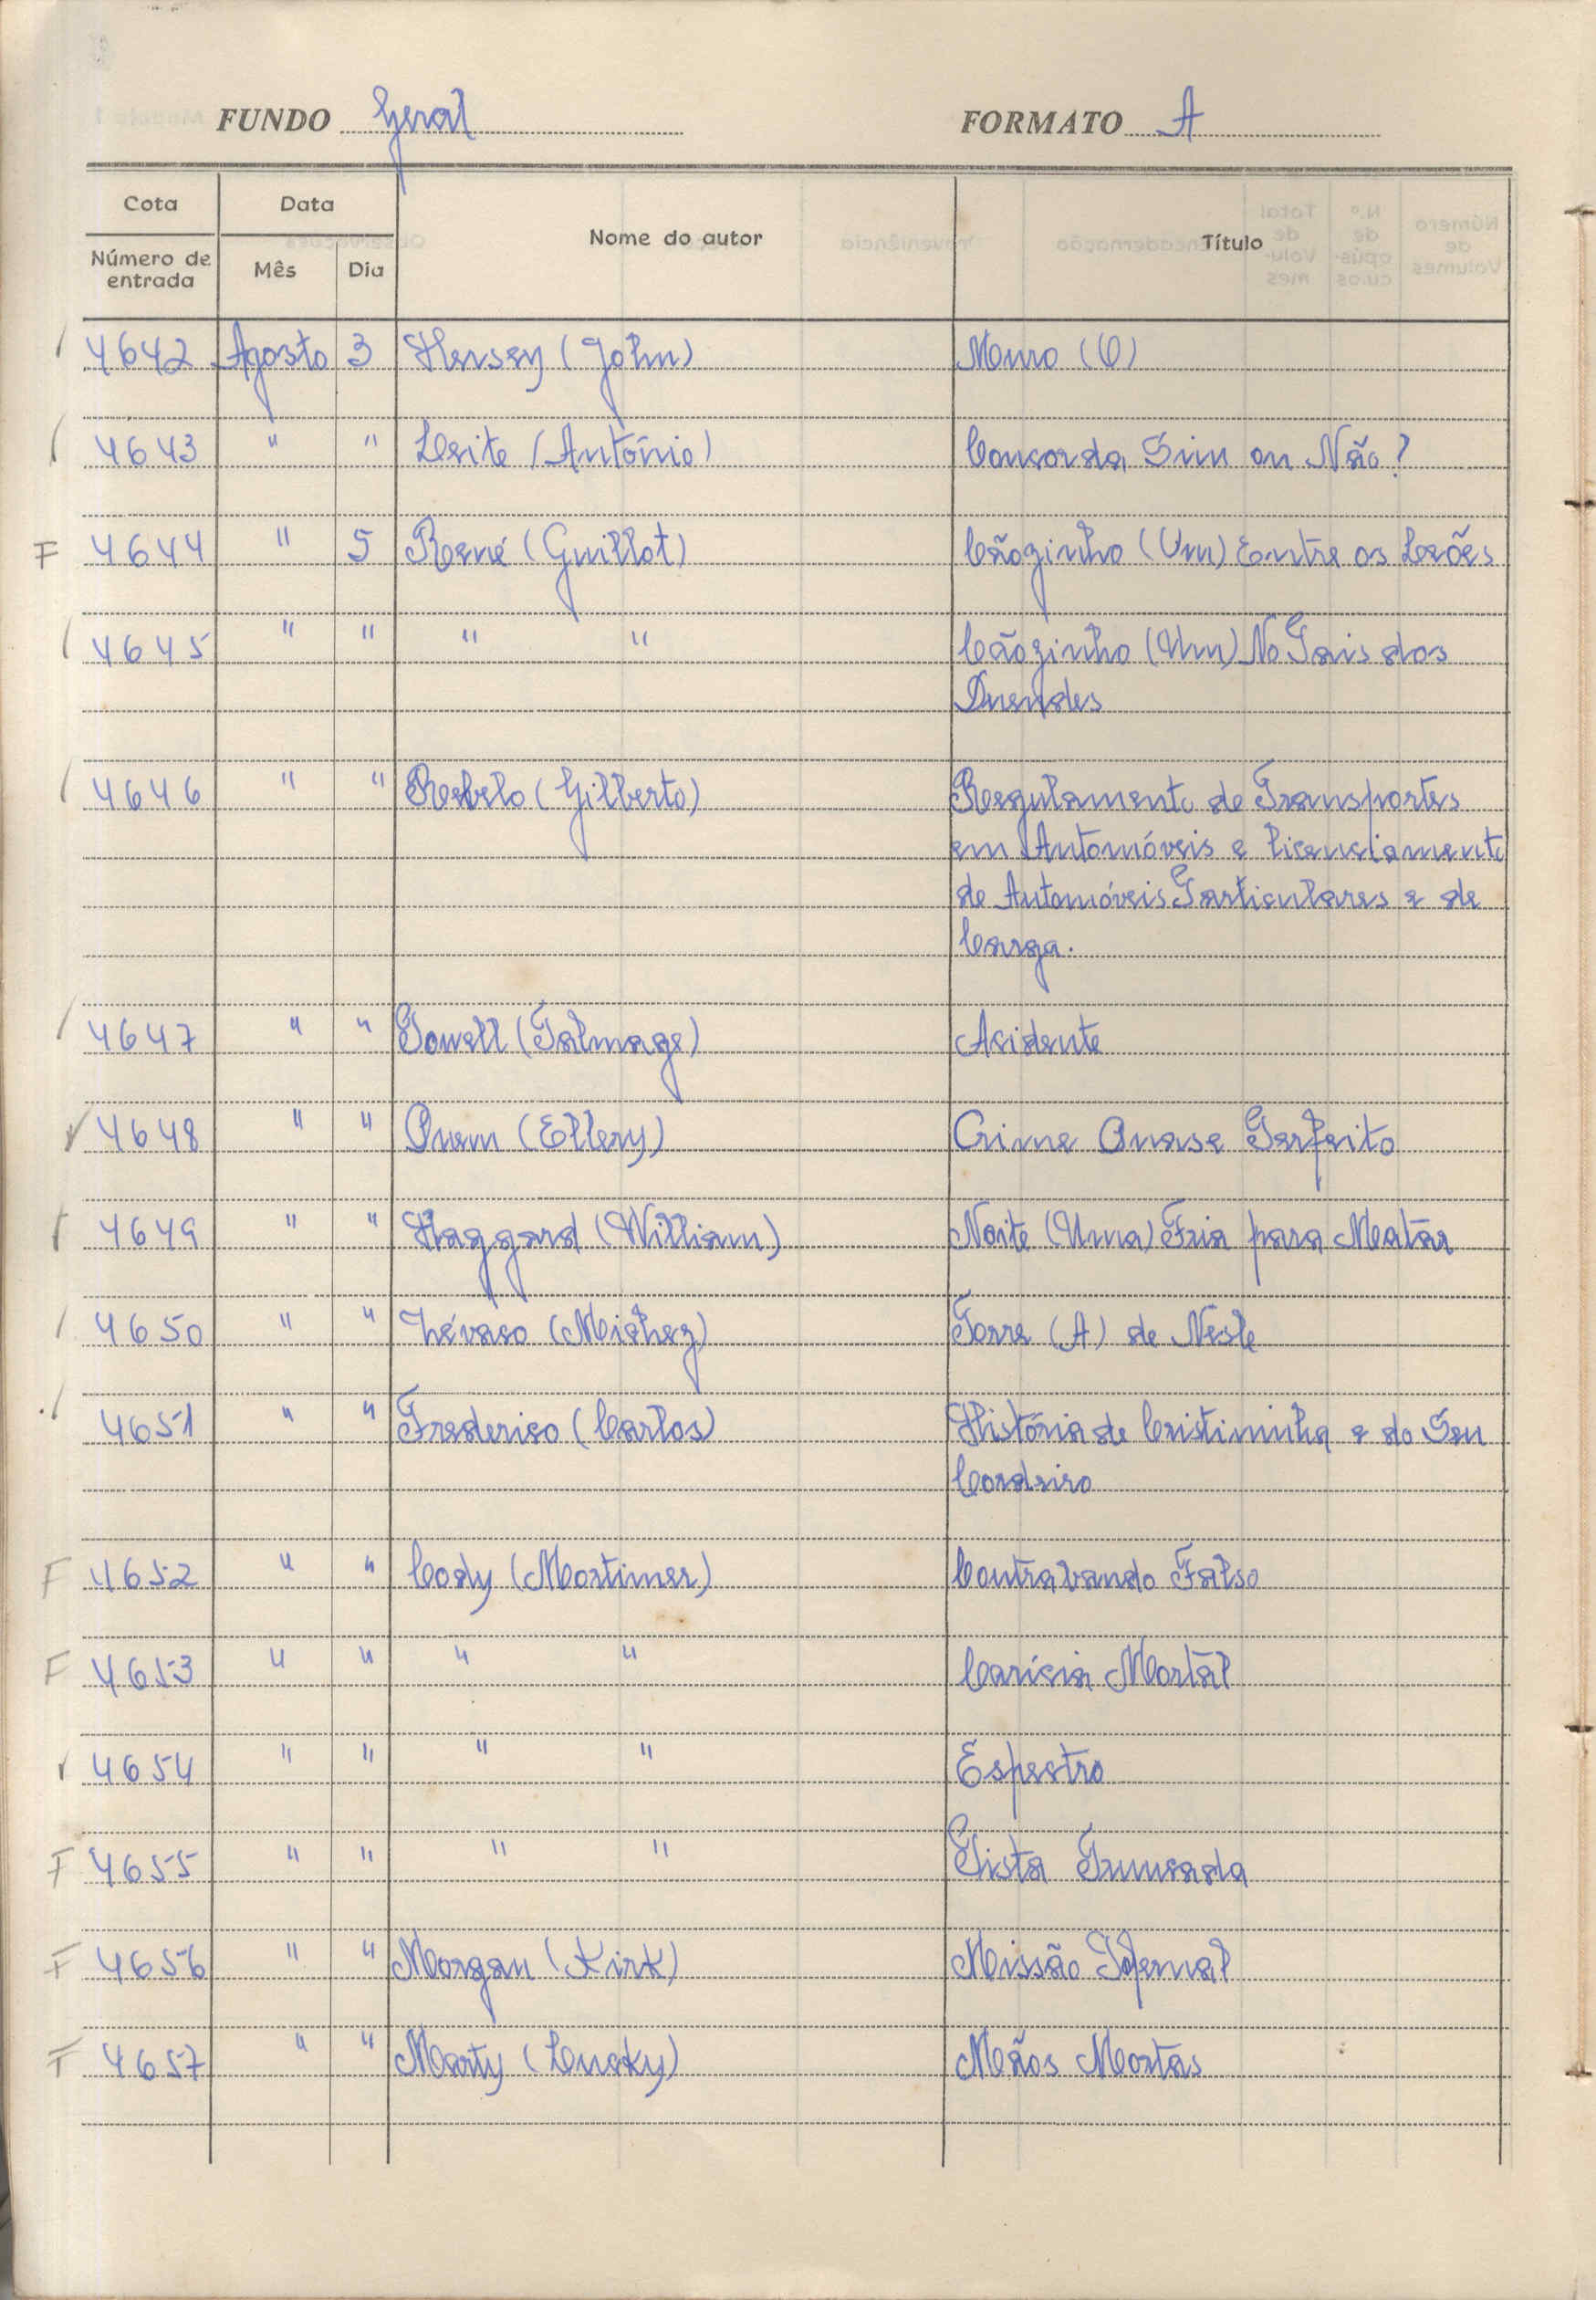 FUNDO Geral FORMATO A
Cota Data Nome do autor Título
Número de entrada Mês Dia
/ 4642 Agosto 3 Hersey (John) Muro (O)
/ 4643 " " Leite (António) Concorda Sim ou Não?
F 4644 " 5 René (Guillot) Cãozinho (Um) Entre os Leões
/ 4645 " " " " Cãozinho (Um) No Pais dos
Duendes
/ 4646 " " Rebelo (Gilberto) Regulamento de Transportes
em Automóveis e licenciamento
de Automóveis Particulares e de
Carga.
/ 4647 " " Powell (Talmage) Acidente
✓ 4648 " " Queen (Ellery) Crime Quase Perfeito
4649 " " Haggard (William) Noite (Uma) Fria para Matar
/ 4650 " " Zévaco (Michez) Torre (A) de Nesle
/ 4651 " " Frederico (Carlos) História de Cristininha e do Seu
Cordeiro
F 4652 " " Cody (Mortimer) Contrabando Falso
F 4653 " " " " Carícia Mortal
✓ 4654 " " " " Espectro
F 4655 " " " " Pista Truncada
F 4656 " " Morgan (Kirk) Missão Infernal
F 4657 " " Marty (Cucky) Mãos Mortas